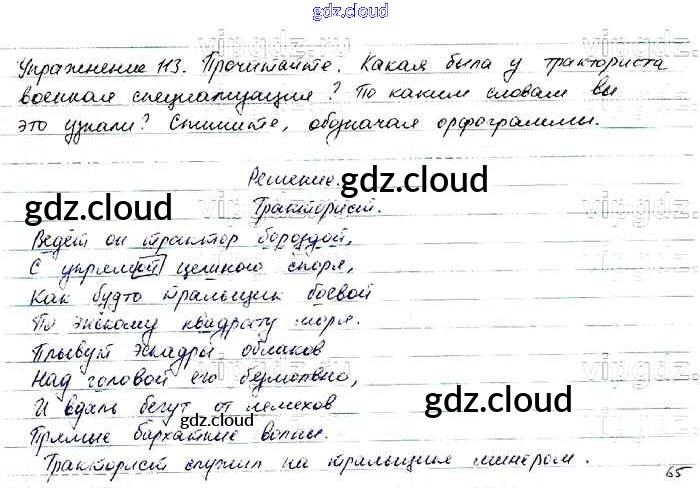 gdz.cloud
vipgdz.ru
Упражнение 113. Прочитайте. Какая была у тракториста
военная специализация? По каким словам вы
это узнали? Спишите, обозначая орфограммы.
Решение.
gdz.cloud
gdz.cloud
Тракторист.
Ведёт он трактор бороздой,
С упрямой целиною споря,
Как будто тральщик боевой
По энскому квадрату моря.
Плывут эскадры облаков
Над головой его безмолвно,
И вдаль бегут от лемехов
gdz.cloud
gdz.cloud
Прямые бархатные волны.
Тракторист служил на тральщике минёром.
65